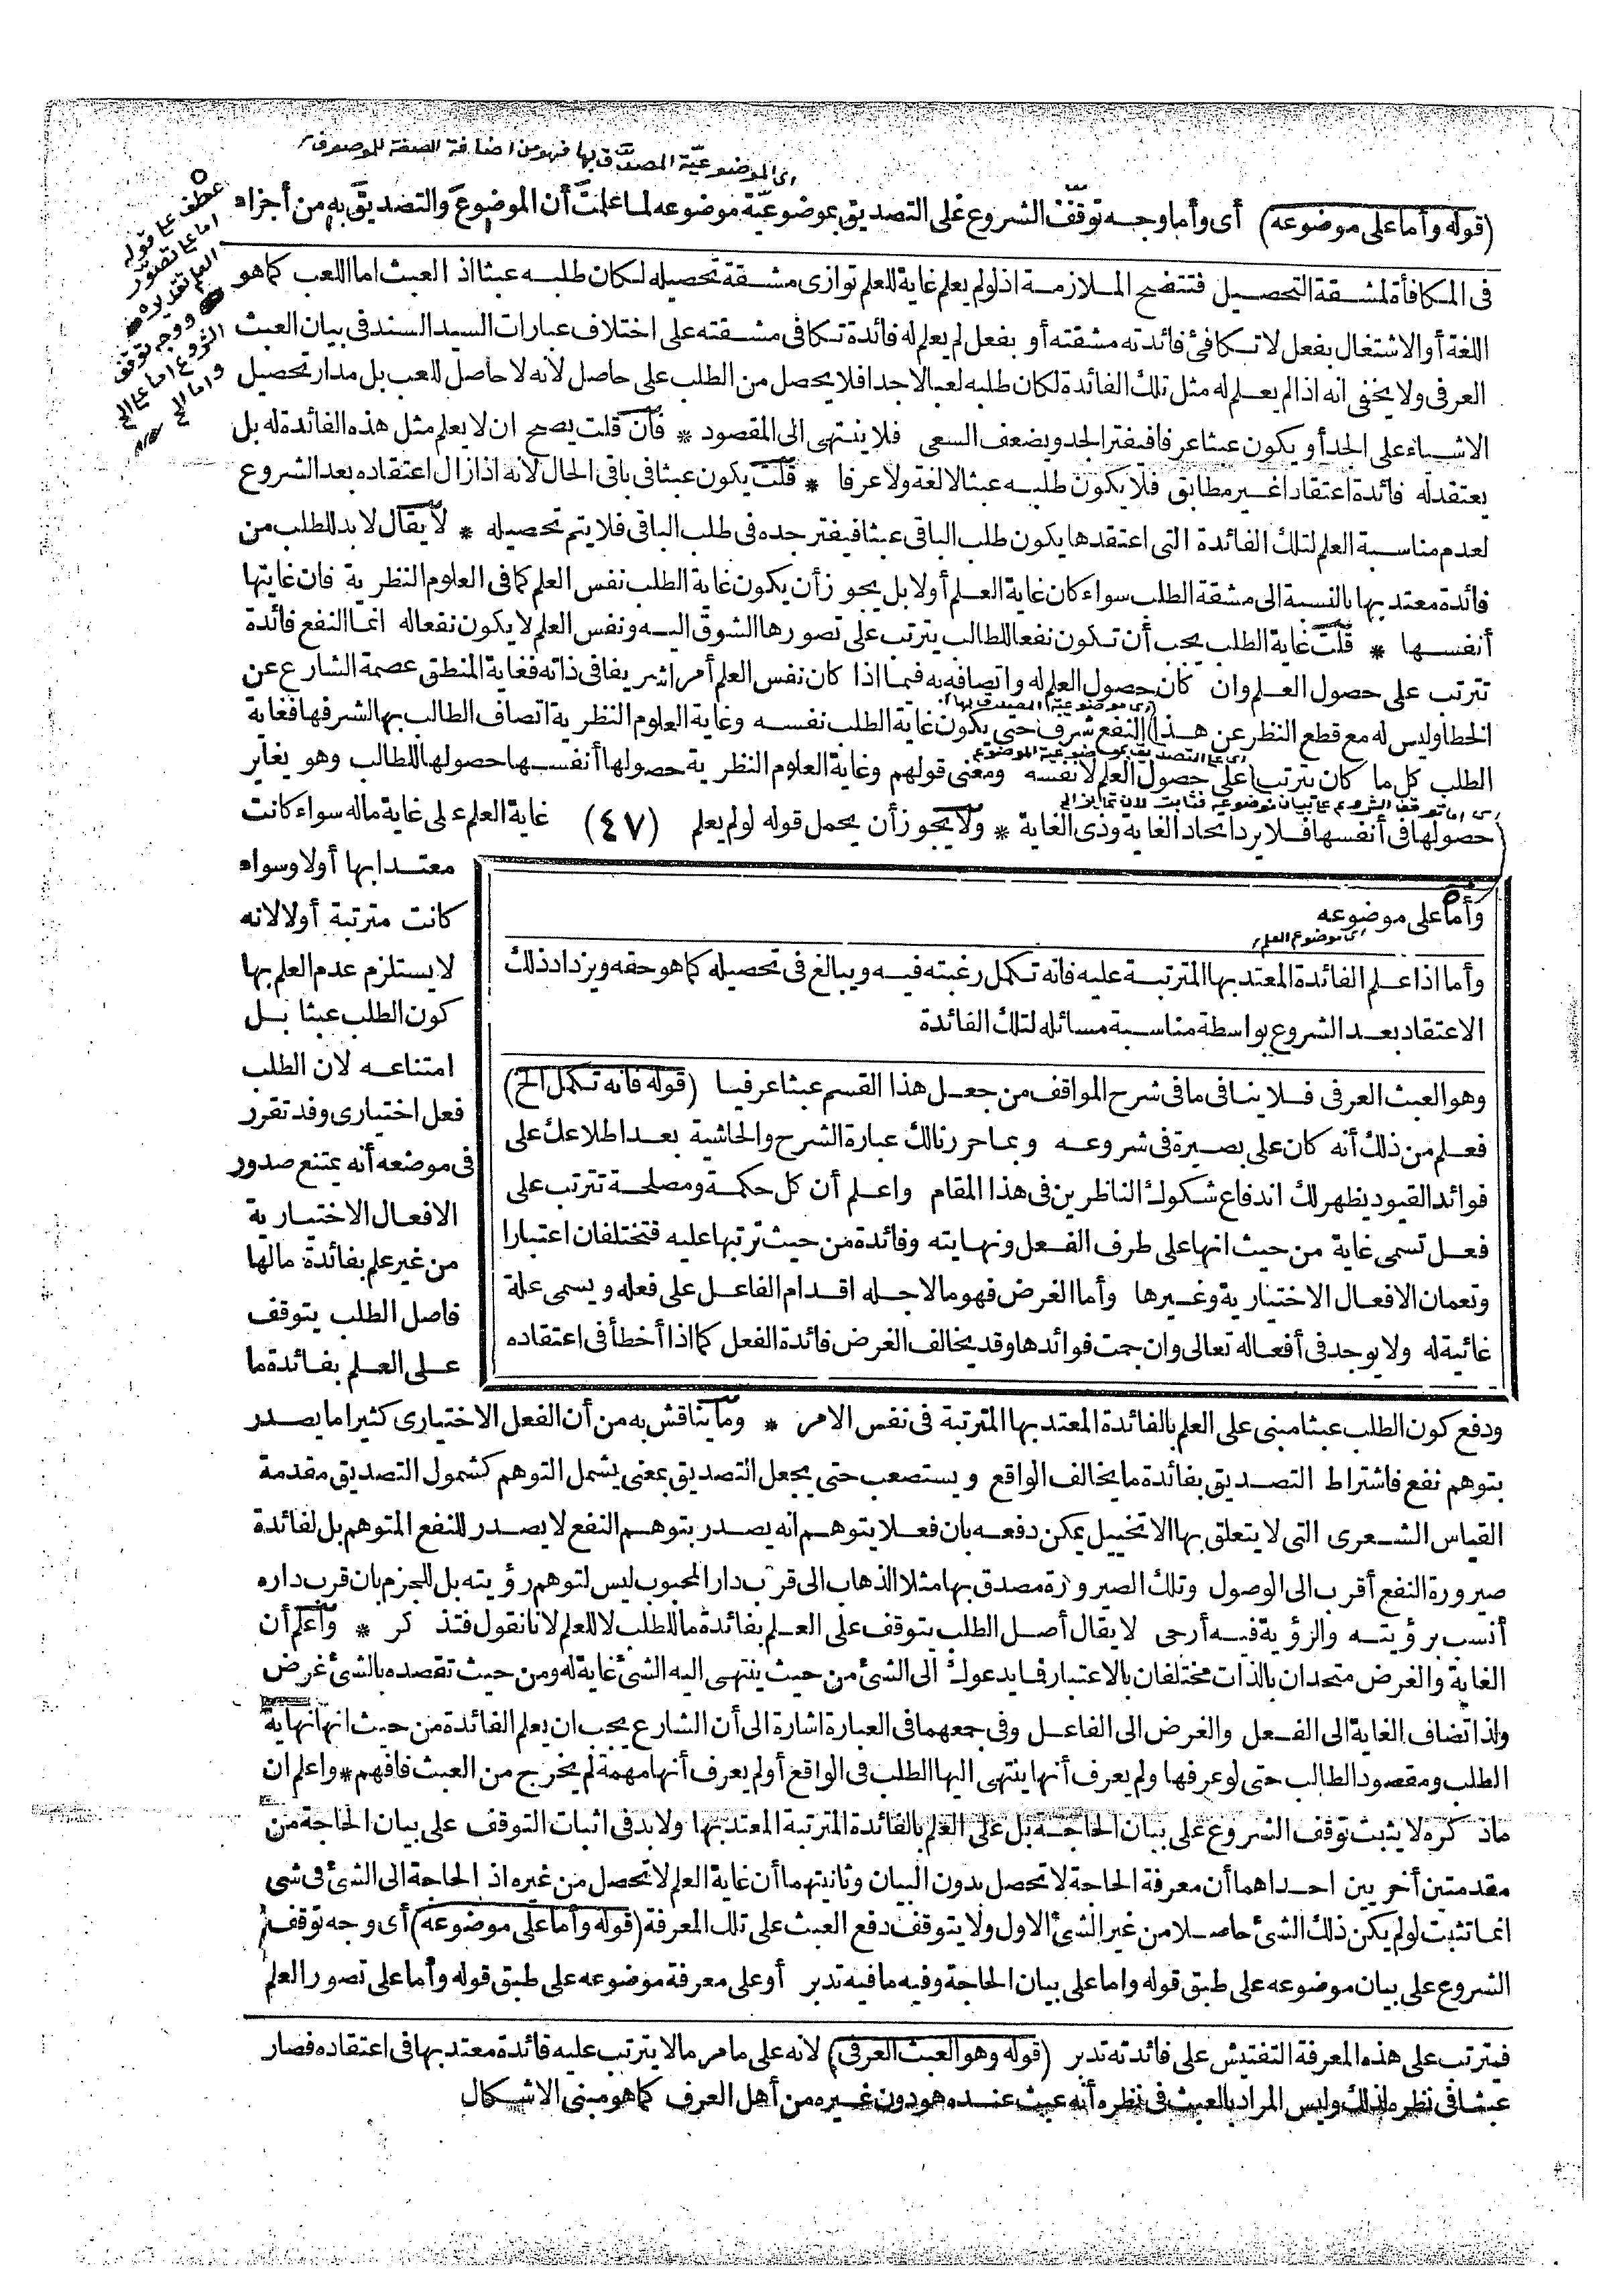 اى الموضوعية المصدق بها فهو من اضافة الصفة للموصوف
(قوله وأما على موضوعه) أى وأما وجه توقف الشروع على التصديق بموضوعية موضوعه لما علمت أن الموضوع والتصديق به من أجزاء
عطف على قوله
اما على تصور
العلم تقديره
ووجه توقف
الشروع اما على الخ
واما الخ
فى المكافأة لمشقة التحصيل فتتضح الملازمة اذ لو لم يعلم غاية للعلم توازى مشقة تحصيله لكان طلبه عبثا اذ العبث اما اللعب كما هو
اللغة أو الاشتغال بفعل لا تكافئ فائدته مشقته أو بفعل لم يعلم له فائدة تكافى مشقته على اختلاف عبارات السيد السند فى بيان العبث
العرفى ولا يخفى انه اذا لم يعلم له مثل تلك الفائدة لكان طلبه لعبا لاجدا فلا يحصل من الطلب على حاصل لانه لا حاصل للعب بل مدار تحصيل
الاشياء على الجد أو يكون عبثا عرفا فيفتر الجد ويضعف السعى فلا ينتهى الى المقصود * فان قلت يصح ان لا يعلم مثل هذه الفائدة له بل
يعتقد له فائدة اعتقادا غير مطابق فلا يكون طلبه عبثا لا لغة ولا عرفا * قلت يكون عبثا فى باقى الحال لانه اذا زال اعتقاده بعد الشروع
لعدم مناسبة العلم لتلك الفائدة التى اعتقدها يكون طلب الباقى عبثا فيفتر جده فى طلب الباقى فلا يتم تحصيله * لا يقال لا بد للطلب من
فائدة معتد بها بالنسبة الى مشقة الطلب سواء كان غاية العلم أو لا بل يجوز أن يكون غاية الطلب نفس العلم كما فى العلوم النظرية فان غايتها
أنفسها * قلت غاية الطلب يجب أن تكون نفعا للطالب يترتب على تصورها الشوق اليه ونفس العلم لا يكون نفعا له انما النفع فائدة
تترتب على حصول العلم وان كان حصول العلم له واتصافه به فيما اذا كان نفس العلم أمرا شريفا فى ذاته فغاية المنطق عصمة الشارع عن
اى موضوعية المصدق بها
الخطا وليس له مع قطع النظر عن هذا النفع شرف حتى يكون غاية الطلب نفسه وغاية العلوم النظرية اتصاف الطالب بها لشرفها فغاية
اى على التصديق بموضوعية الموضوع
الطلب كل ما كان يترتب على حصول العلم لا نفسه ومعنى قولهم وغاية العلوم النظرية حصولها أنفسها حصولها للطالب وهو يغاير
اى اما توقف الشروع على بيان موضوعه فثابت لان تمايز الخ
حصولها فى أنفسها فلا يرد اتحاد الغاية وذى الغاية * ولا يجوز أن يحمل قوله لو لم يعلم (٤٧) غاية العلم على غاية ما له سواء كانت
معتدا بها أو لا وسواء
كانت مترتبة أو لا لانه
لا يستلزم عدم العلم بها
كون الطلب عبثا بل
امتناعه لان الطلب
فعل اختيارى وقد تقرر
فى موضعه أنه يمتنع صدور
الافعال الاختيارية
من غير علم بفائدة ما لها
فاصل الطلب يتوقف
على العلم بفائدة ما
وأما على موضوعه
اى موضوع العلم
وأما اذا علم الفائدة المعتد بها المترتبة عليه فانه تكمل رغبته فيه ويبالغ فى تحصيله كما هو حقه ويزداد ذلك
الاعتقاد بعد الشروع بواسطة مناسبة مسائله لتلك الفائدة
وهو العبث العرفى فلا ينافى ما فى شرح المواقف من جعل هذا القسم عبثا عرفيا (قوله فانه تكمل الخ)
فعلم من ذلك أنه كان على بصيرة فى شروعه وبما حررنا لك عبارة الشرح والحاشية بعد اطلاعك على
فوائد القيود يظهر لك اندفاع شكوك الناظرين فى هذا المقام واعلم أن كل حكمة ومصلحة تترتب على
فعل تسمى غاية من حيث انها على طرف الفعل ونهايته وفائدة من حيث ترتبها عليه فتختلفان اعتبارا
وتعمان الافعال الاختيارية وغيرها وأما الغرض فهو ما لاجله اقدام الفاعل على فعله ويسمى علة
غائية له ولا يوجد فى أفعاله تعالى وان جمت فوائدها وقد يخالف الغرض فائدة الفعل كما اذا أخطأ فى اعتقاده
ودفع كون الطلب عبثا مبنى على العلم بالفائدة المعتد بها المترتبة فى نفس الامر * وما يناقش به من أن الفعل الاختيارى كثيرا ما يصدر
بتوهم نفع فاشتراط التصديق بفائدة ما يخالف الواقع ويستصعب حتى يجعل التصديق بمعنى يشمل التوهم كشمول التصديق مقدمة
القياس الشعرى التى لا يتعلق بها الا تخييل يمكن دفعه بان فعلا يتوهم انه يصدر بتوهم النفع لا يصدر للنفع المتوهم بل لفائدة
صيرورة النفع أقرب الى الوصول وتلك الصيرورة مصدق بها مثلا الذهاب الى قرب دار المحبوب ليس لتوهم رؤيته بل للجزم بان قرب داره
أنسب برؤيته والرؤية فيه أرجى لا يقال أصل الطلب يتوقف على العلم بفائدة ما للطلب لا للعلم لانا نقول فتذكر * واعلم أن
الغاية والغرض متحدان بالذات مختلفان بالاعتبار فما يدعوك الى الشئ من حيث ينتهى اليه الشئ غاية له ومن حيث تقصده بالشئ غرض
ولذا تضاف الغاية الى الفعل والغرض الى الفاعل وفى جمعهما فى العبارة اشارة الى أن الشارع يجب ان يعلم الفائدة من حيث انها نهاية
الطلب ومقصود الطالب حتى لو عرفها ولم يعرف أنها ينتهى اليها الطلب فى الواقع أو لم يعرف أنها مهمة لم يخرج من العبث فافهم * واعلم ان
ما ذكره لا يثبت توقف الشروع على بيان الحاجة بل على العلم بالفائدة المترتبة المعتد بها ولا بد فى اثبات التوقف على بيان الحاجة من
مقدمتين أخريين احداهما أن معرفة الحاجة لا تحصل بدون البيان وثانيتهما أن غاية العلم لا تحصل من غيره اذ الحاجة الى الشئ فى شئ
انما تثبت لو لم يكن ذلك الشئ حاصلا من غير الشئ الاول ولا يتوقف دفع العبث على تلك المعرفة (قوله وأما على موضوعه) أى وجه توقف
الشروع على بيان موضوعه على طبق قوله واما على بيان الحاجة وفيه ما فيه تدبر أو على معرفة موضوعه على طبق قوله وأما على تصور العلم
فيترتب على هذه المعرفة التفتيش على فائدته تدبر (قوله وهو العبث العرفى) لانه على ما مر ما لا يترتب عليه فائدة معتد بها فى اعتقاده فصار
عبثا فى نظره لذلك وليس المراد بالعبث فى نظره أنه عبث عنده هو دون غيره من أهل العرف كما هو مبنى الاشكال